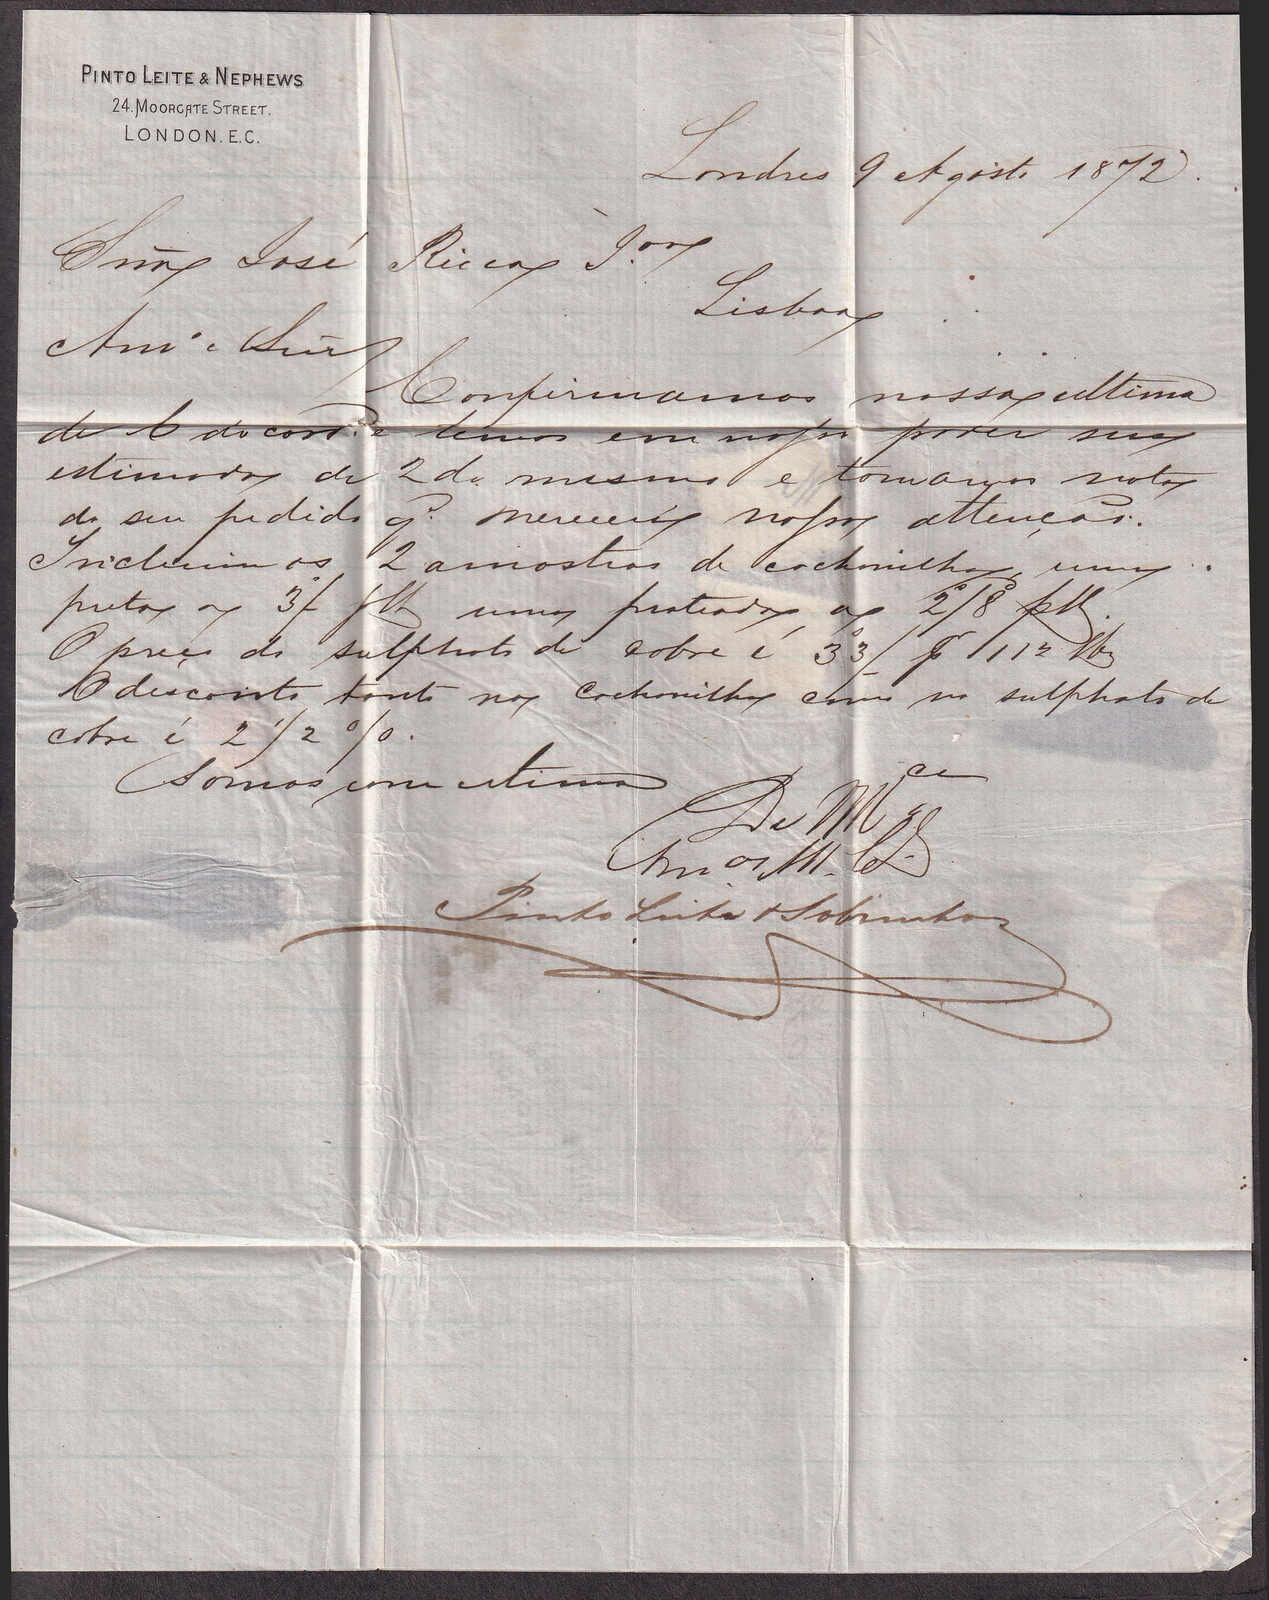 PINTO LEITE & NEPHEWS
24. MOORGATE STREET.
LONDON. E.C.
Londres 9 Agosto 1872.
José Ricca Jor
Lisboa
Amo e Snr
Confirmamos nossa ultima
de 6 do corre. e temos em nosso poder sua
estimada de 2 do mesmo e tomamos nota
do seu pedido q. merecerá nossa attenção.
Incluimos 2 amostras de cochonilha, uma
preta a 3/ p lb uma prateada a 2/8 p lb.
O preço do sulphato de cobre é 33/ p 112 lbs
O desconto tanto na cochonilha como no sulphato de
cobre é 2 1/2 %.
Somos com estima
De Mce
Amos M.
Pinto Leite & Sobrinhos